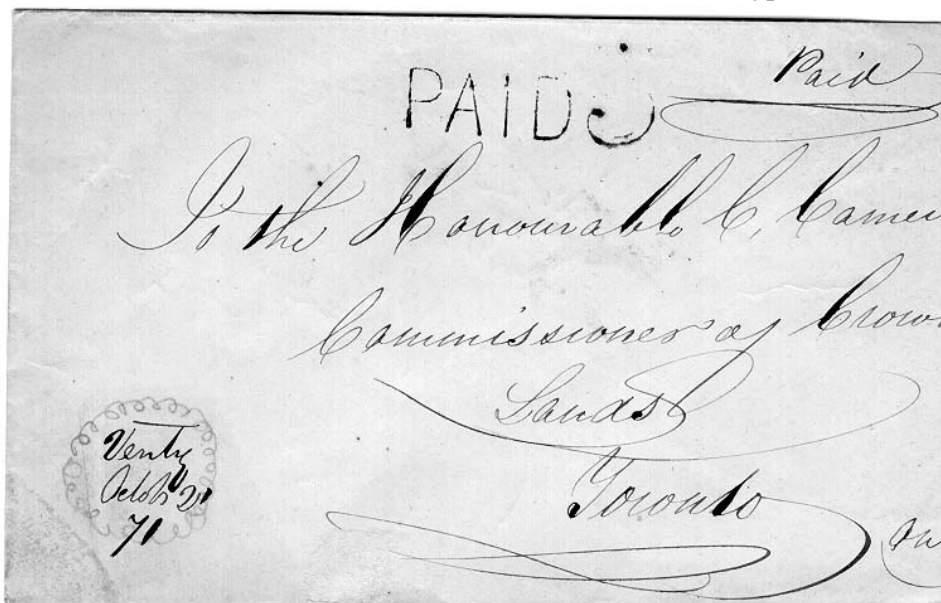 Paid
PAID 3
To the Honourable C, Camer
Commissioner of Crow
Lands
Toronto
On
Ventry
Octob 2
71